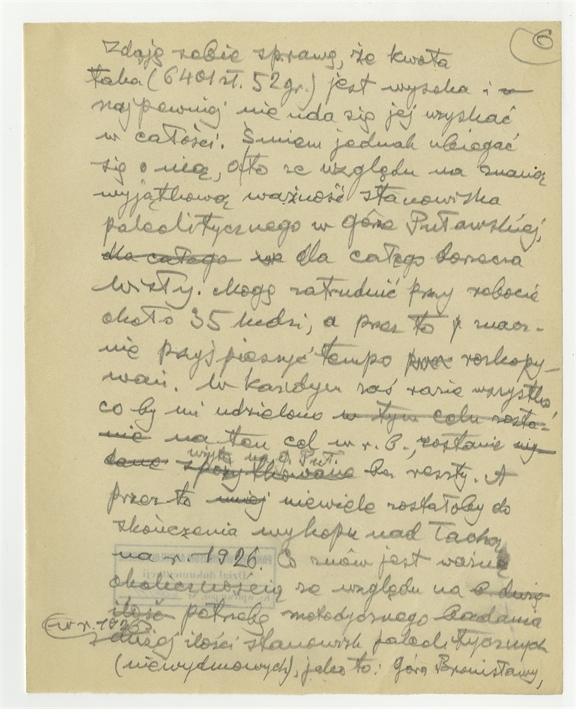 6
Zdaję sobie sprawę, że kwota
taka (6401 zł. 52 gr.) jest wysoka i
najpewniej nie uda się jej uzyskać
w całości. Śmiem jednak ubiegać
się o nią, a to ze względu na znaną
wyjątkową ważność stanowiska
paleolitycznego w górze Puławskiej,
dla całego dla całego dorzecza
Wisły. Mogę zatrudnić przy robocie
około 35 ludzi, a przez to znacz-
nie przyśpieszyć tempo rozkopy-
wań. W każdym zaś razie wszystko
co by mi udzielono w tym celu zosta-
nie na ten cel w r. b., zostanie
wyda na G. Puł.
spożytkowane bez reszty. A
przez to mniej niewiele zostałoby do
skończenia wykopu nad Tachą
na r. 1926. Co znów jest ważną
okolicznością ze względu na dużą
ilość potrzebę metodycznego badania
(w r. 1926)
dużej ilości stanowisk paleolitycznych
(niewydmowych), jako to: Góra Bronisławy,